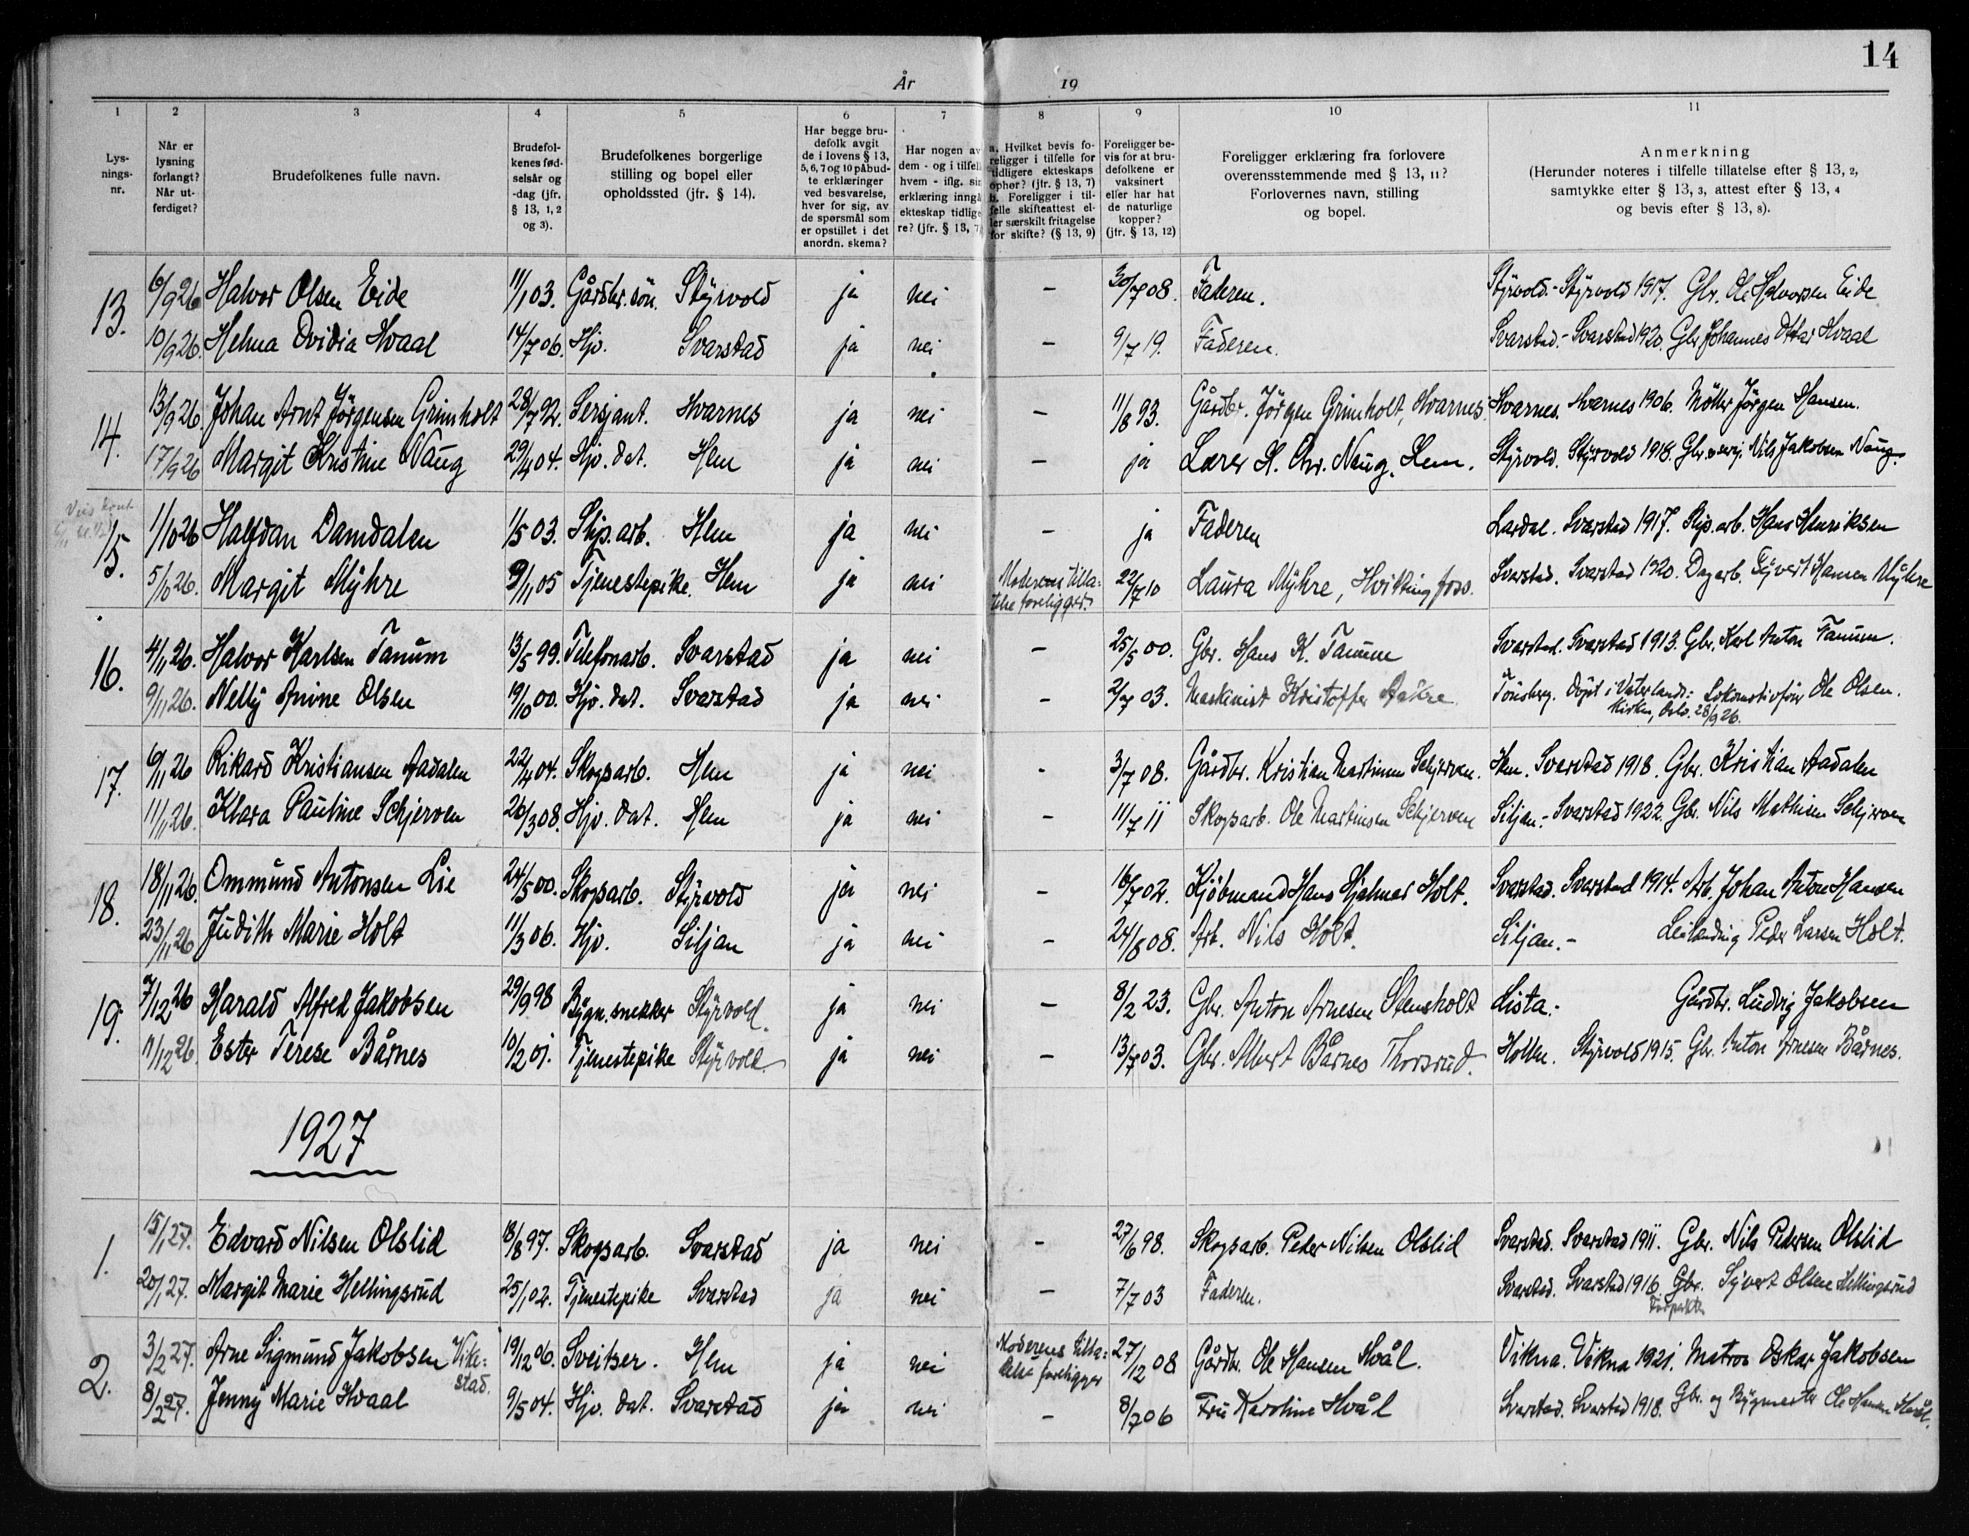 14
År 19
1 2 3 4 5 6 7 8 9 10 11
Lys-
nings-
nr.
Når er
lysning
forlangt?
Når ut-
ferdiget?
Brudefolkenes fulle navn.
Brudefol-
kenes fød-
selsår og
-dag (jfr.
§ 13, 1, 2
og 3).
Brudefolkenes borgerlige
stilling og bopel eller
opholdssted (jfr. § 14).
Har begge bru-
defolk avgit
de i lovens § 13,
5, 6, 7 og 10 påbud-
te erklæringer
ved besvarelse,
hver for sig, av
de spørsmål som
er opstillet i det
anordn. skema?
Har nogen av
dem - og i tilfelle
hvem - iflg. sin
erklæring inngå
ekteskap tidlige
re? (jfr. § 13, 7)
a. Hvilket bevis fo-
religger i tilfelle for
tidligere ekteskaps
ophør? (jfr. § 13, 7)
b. Foreligger i til-
felle skifteattest el-
ler særskilt fritagelse
for skifte? (§ 13, 9)
Foreligger be-
vis for at bru-
defolkene er
vaksinert
eller har hat
de naturlige
kopper?
(jfr. § 13, 12)
Foreligger erklæring fra forlovere
overensstemmende med § 13, 11?
Forlovernes navn, stilling
og bopel.
Anmerkning
(Herunder noteres i tilfelle tillatelse efter § 13, 2,
samtykke efter § 13, 3, attest efter § 13, 4
og bevis efter § 13, 8).
13. 6/9 26 Halvor Olsen Eide 11/1 03. Gårdbr. søn. Styrvold ja nei - 30/7 08. Faderen. Styrvold. - Styrvold 1917. Gbr. Ole Halvorsen Eide
10/9 26. Helma Ovidia Hvaal 14/7 06. Hjv. Svarstad ja nei - 9/7 19. Faderen. Svarstad. - Svarstad 1920. Gbr. Johannes Ottar Hvaal
14. 13/9 26. Johan Arnt Jörgensen Grimholt 28/7 92. Sersjant. Hvarnes ja nei - 11/8 93. Gårdbr. Jörgen Grimholt, Hvarnes. Hvarnes. Hvarnes 1906. Möller Jörgen Hansen.
17/9 26 Margit Kristine Naug 29/4 04. Hjv. dat. Hem ja nei - ja Lærer H. Chr. Naug. Hem. Styrvold. Styrvold 1918. Gbr. Nils Jakobsen Naug.
15. 1/10 26 Halfdan Damdalen 1/5 03. Slip. arb. Hem ja nei - ja Faderen Lardal. Svarstad 1917. Slip. arb. Hans Henriksen
5/10 26. Margit Myhre 9/11 05 Tjenestepike. Hem ja nei Moderens tilla-
telse foreligger. 22/7 10 Laura Myhre, Hvittingfoss. Svarstad. Svarstad 1920. Dagarb. Syvert Hansen Myhre
16. 4/11 26. Halvor Karlsen Tanum 13/5 99. Telefonarb. Svarstad ja nei - 25/5 00. Gbr. Hans K. Tanum Svarstad. Svarstad 1913. Gbr. Karl Anton Tanum.
9/11 26. Nelly Anine Olsen 19/10 00. Hjv. dat. Svarstad ja nei - 2/7 03. Maskinist Kristoffer Aakre. Tönsberg. Döpt i Vaterlands: Lokomotivförer Ole Olsen.
kirken, Oslo. 28/9 26.
17. 6/11 26 Rikard Kristiansen Aadalen 22/4 04. Skogsarb. Hem ja nei - 3/7 08. Gårdbr. Kristian Martinsen Schjerven. Hem. Svarstad 1918. Gbr. Kristian Aadalen
11/11 26. Klara Pauline Schjerven 26/3 08. Hjv. dat. Hem ja nei - 11/7 11 Skogsarb. Ole Martinsen Schjerven Siljan. - Svarstad 1922. Gbr. Nils Mathisen Schjerven
18. 18/11 26. Ommund Antonsen Lie 24/5 00. Skogsarb. Styrvold ja nei - 16/7 02. Kjöbmand Hans Hjalmar Holt. Svarstad. Svarstad 1914. Arb. Johan Anton Hansen
23/11 26 Judith Marie Holt 11/3 06. Hjv. Siljan ja nei - 24/8 08. Arb. Nils Holt. Siljan. - Leilending Peder Larsen Holt.
19. 7/12 26 Harald Alfred Jakobsen 29/9 98 Bygn. snekker Styrvold. ja nei - 8/2 23. Gbr. Anton Arnesen Stensholt Lista. - Gårdbr. Ludvig Jakobsen
11/12 26. Ester Terese Bårnes 10/2 01. Tjenestepike Styrvold. ja nei - 13/7 03. Gbr. Albert Bårnes Thorsrud. Hollen. Styrvold 1915. Gbr. Anton Arnesen Bårnes.
1927
1. 15/1 27. Edvard Nilsen Olslid 18/8 97. Skogsarb. Svarstad ja nei - 27/6 98. Skogsarb. Peder Nilsen Olslid Svarstad. Svarstad 1911. Gbr. Nils Pedersen Olslid
20/1 27. Margit Marie Hellingsrud 25/1 02. Tjenestepike Svarstad ja nei - 7/7 03 Faderen. Svarstad. Svarstad 1916. Gbr. Syvert Olsen Hellingsrud
2. 3/2 27. Arne Sigmund Jakobsen Vike-
stad. 19/12 06. Sveitser. Hem ja nei Moderens tilla-
telse foreligger 27/12 08 Gårdbr. Ole Hansen Hvål. Vikna. Vikna 1921. Matros Oskar Jakobsen
8/2 27. Jenny Marie Hvaal 9/5 04. Hjv. dat. Svarstad ja nei - 8/7 06 Fru Karoline Hvål Svarstad. Svarstad 1918. Gbr. og Bygmester Ole Hansen Hvål.